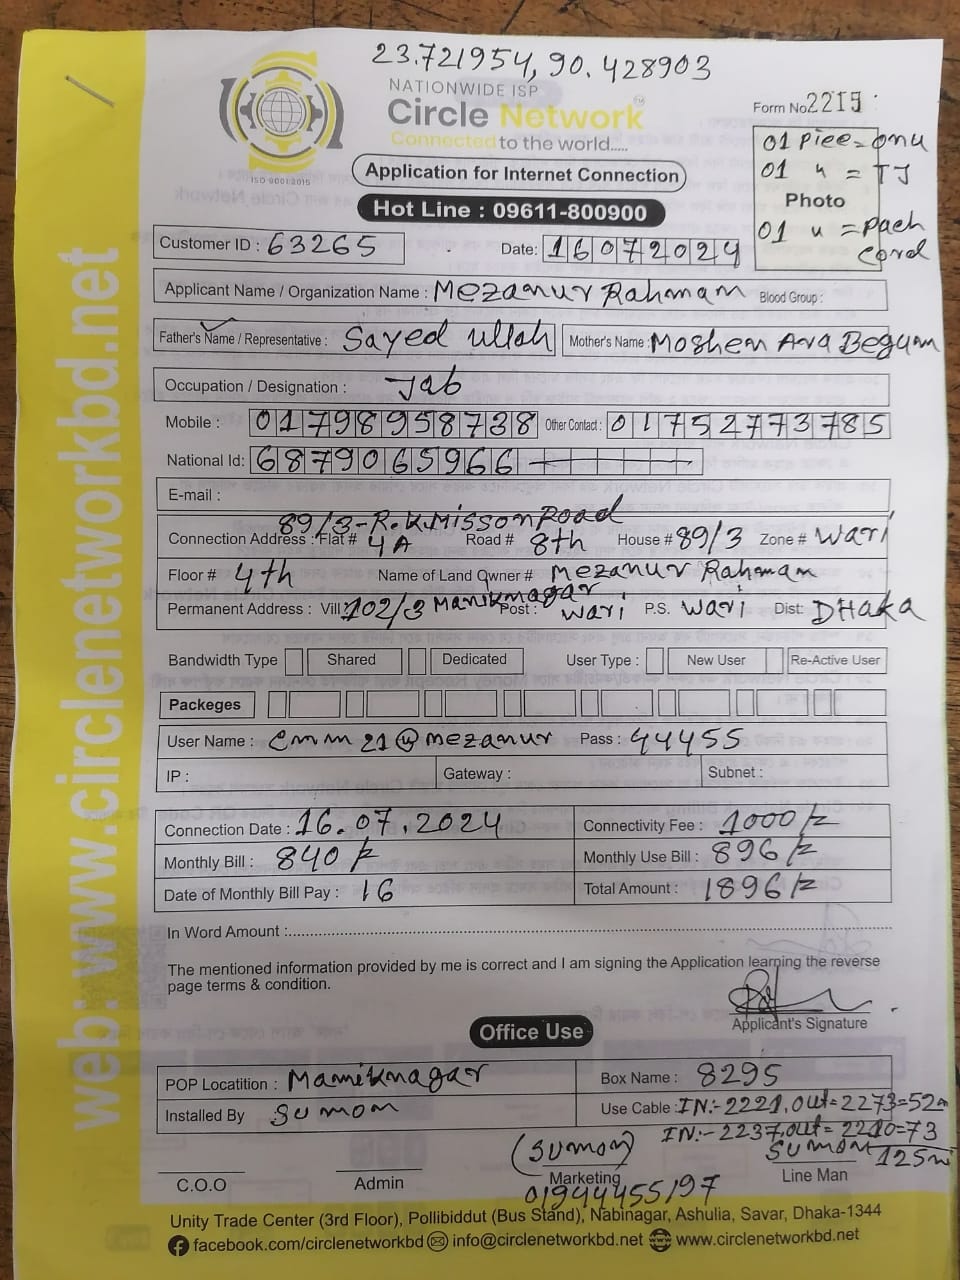 23.721954, 90.428903
NATIONWIDE ISP
Circle Network
Connected to the world.....
ISO 9001:2015
Form No 2215
01 Piece = onu
01 " = TJ
Photo
01 " = Pach Cord
Application for Internet Connection
Hot Line : 09611-800900
Customer ID : 63265
Date: 16072024
Applicant Name / Organization Name : Mezanur Rahmam Blood Group :
Father's Name / Representative : Sayed Ullah Mother's Name : Moshen Ara Begum
Occupation / Designation : Job
Mobile : 01798958738 Other Contact : 01752773785
National Id: 6879065966
E-mail :
89/3-R.K.Misson Road
Connection Address : Flat # 4A Road # 8th House # 89/3 Zone # Wari
Floor # 4th Name of Land Owner # Mezanur Rahmam
Permanent Address : Vill: 102/3 Maniknagar Post : Wari P.S. Wari Dist: DHaka
Bandwidth Type Shared Dedicated User Type : New User Re-Active User
Packeges
User Name : cmm21@mezanur Pass : 44455
IP : Gateway : Subnet :
Connection Date : 16.07.2024 Connectivity Fee : 1000/=
Monthly Bill : 840/= Monthly Use Bill : 896/=
Date of Monthly Bill Pay : 16 Total Amount : 1896/=
In Word Amount :
The mentioned information provided by me is correct and I am signing the Application learning the reverse
page terms & condition.
Applicant's Signature
Office Use
POP Locatition : Mamiknagar Box Name : 8295
Installed By Sumon Use Cable : IN:- 2221, Out= 2273=52m
IN:- 2237, out= 2210=73
125m
(Sumon) Sumon
C.O.O Admin Marketing Line Man
01944455197
Unity Trade Center (3rd Floor), Pollibiddut (Bus Stand), Nabinagar, Ashulia, Savar, Dhaka-1344
facebook.com/circlenetworkbd info@circlenetworkbd.net www.circlenetworkbd.net
web: www.circlenetworkbd.net